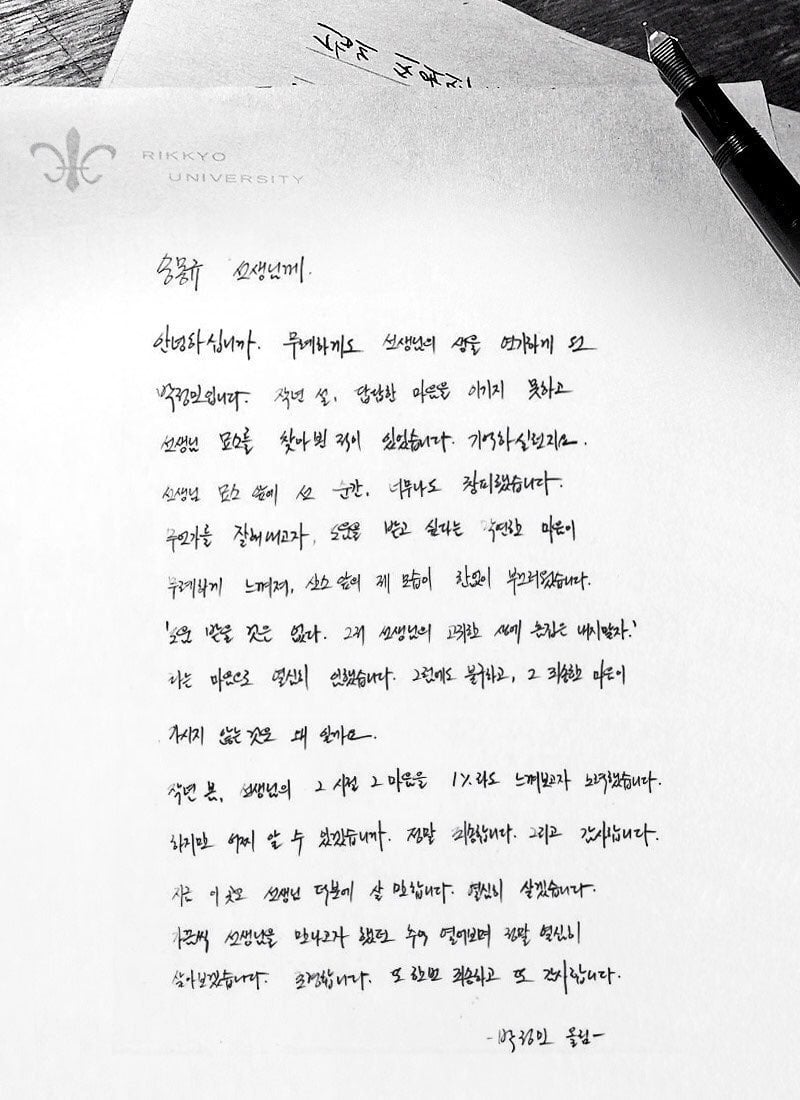 RIKKYO
UNIVERSITY
송몽규 선생님께.
안녕하십니까. 무례하게도 선생님의 생을 연기하게 된
박정민입니다. 작년 설, 답답한 마음을 이기지 못하고
선생님 묘소를 찾아뵌 적이 있었습니다. 기억하실런지요.
선생님 묘소 앞에 선 순간, 너무나도 창피했습니다.
무언가를 잘해내고자, 도움을 받고 싶다는 막연한 마음이
무례하게 느껴져, 산소 앞의 제 모습이 한없이 부끄러웠습니다.
'도움 받을 것은 없다. 그저 선생님의 고귀한 생에 흠집은 내지말자.'
라는 마음으로 열심히 연기했습니다. 그럼에도 불구하고, 그 죄송한 마음이
가시지 않는 것은 왜 일까요.
작년 봄, 선생님의 그 시절 그 마음을 1%라도 느껴보고자 노력했습니다.
하지만 어찌 알 수 있겠습니까. 정말 죄송합니다. 그리고 감사합니다.
지금 이 곳은 선생님 덕분에 살 만합니다. 열심히 살겠습니다.
가끔씩 선생님을 만나고자 했던 추억 열어보며 정말 열심히
살아보겠습니다. 존경합니다. 또 한번 죄송하고 또 감사합니다.
-박정민 올림-